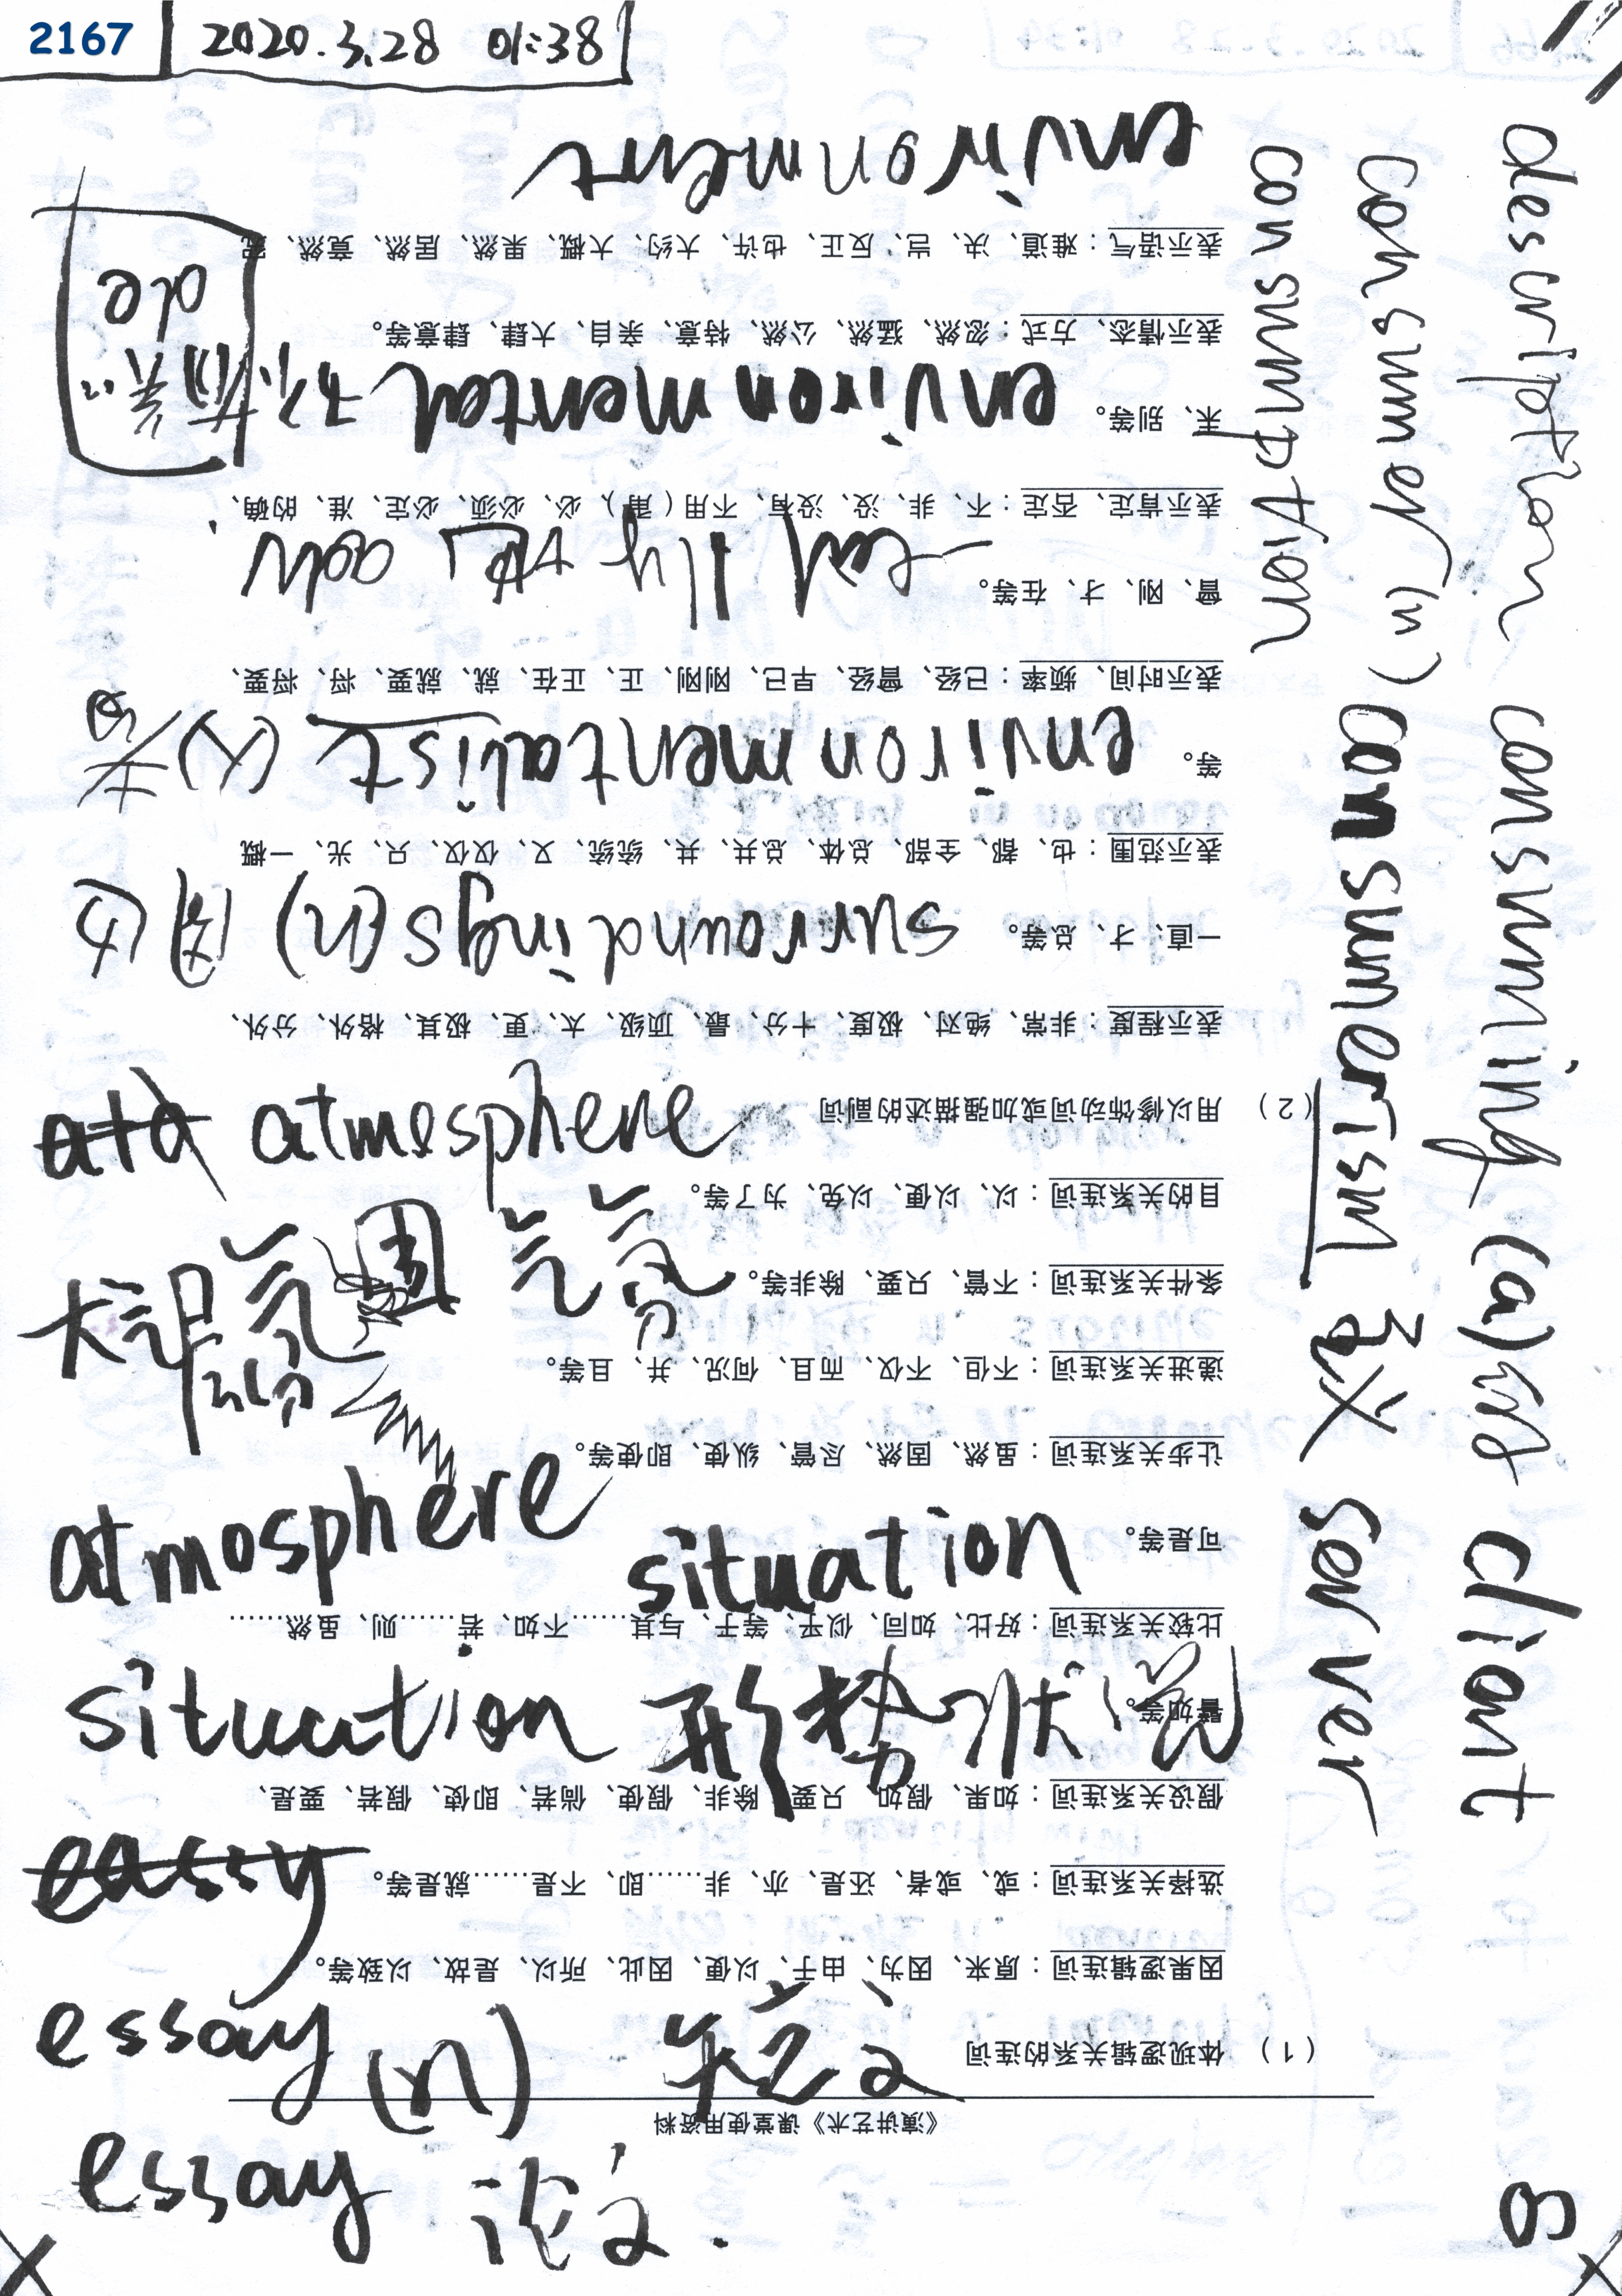 2167
2020.3.28 01:38
environment
environmental
adv
environmentalist
surroundings (n)
atmosphere
气氛
atmosphere
situation
situation 形势 状况
essay
essay (n) 短文
essay 论文.
description
consumer (n)
consumption
consuming (a)
consumerism
client
server
8
《演讲艺术》课堂使用资料
（1） 体现逻辑关系的连词
因果逻辑连词：原来、因为、由于、以便、因此、所以、是故、以致等。
选择关系连词：或、或者、还是、亦、非……即、不是……就是等。
假设关系连词：如果、假如、只要、除非、假使、倘若、即使、假若、要是、
譬如等。
比较关系连词：好比、如同、似乎、等于、与其……不如、若……则、虽然……
可是等。
让步关系连词：虽然、固然、尽管、纵使、即使等。
递进关系连词：不但、不仅、而且、何况、并、且等。
条件关系连词：不管、只要、除非等。
目的关系连词：以、以便、以免、为了等。
（2） 用以修饰动词或加强描述的副词
表示程度：非常、绝对、极度、十分、最、顶级、太、更、极其、格外、分外、
一直、才、总等。
表示范围：也、都、全部、总体、总共、共、统统、又、仅仅、只、光、一概
等。
表示时间、频率：已经、曾经、早已、刚刚、正、正在、就、就要、将、将要、
曾、刚、才、在等。
表示肯定、否定：不、非、没、没有、不用（甭）、必、必须、必定、准、的确、
未、别等。
表示情态、方式：忽然、猛然、公然、特意、亲自、大肆、肆意等。
表示语气：难道、决、岂、反正、也许、大约、大概、果然、居然、竟然、